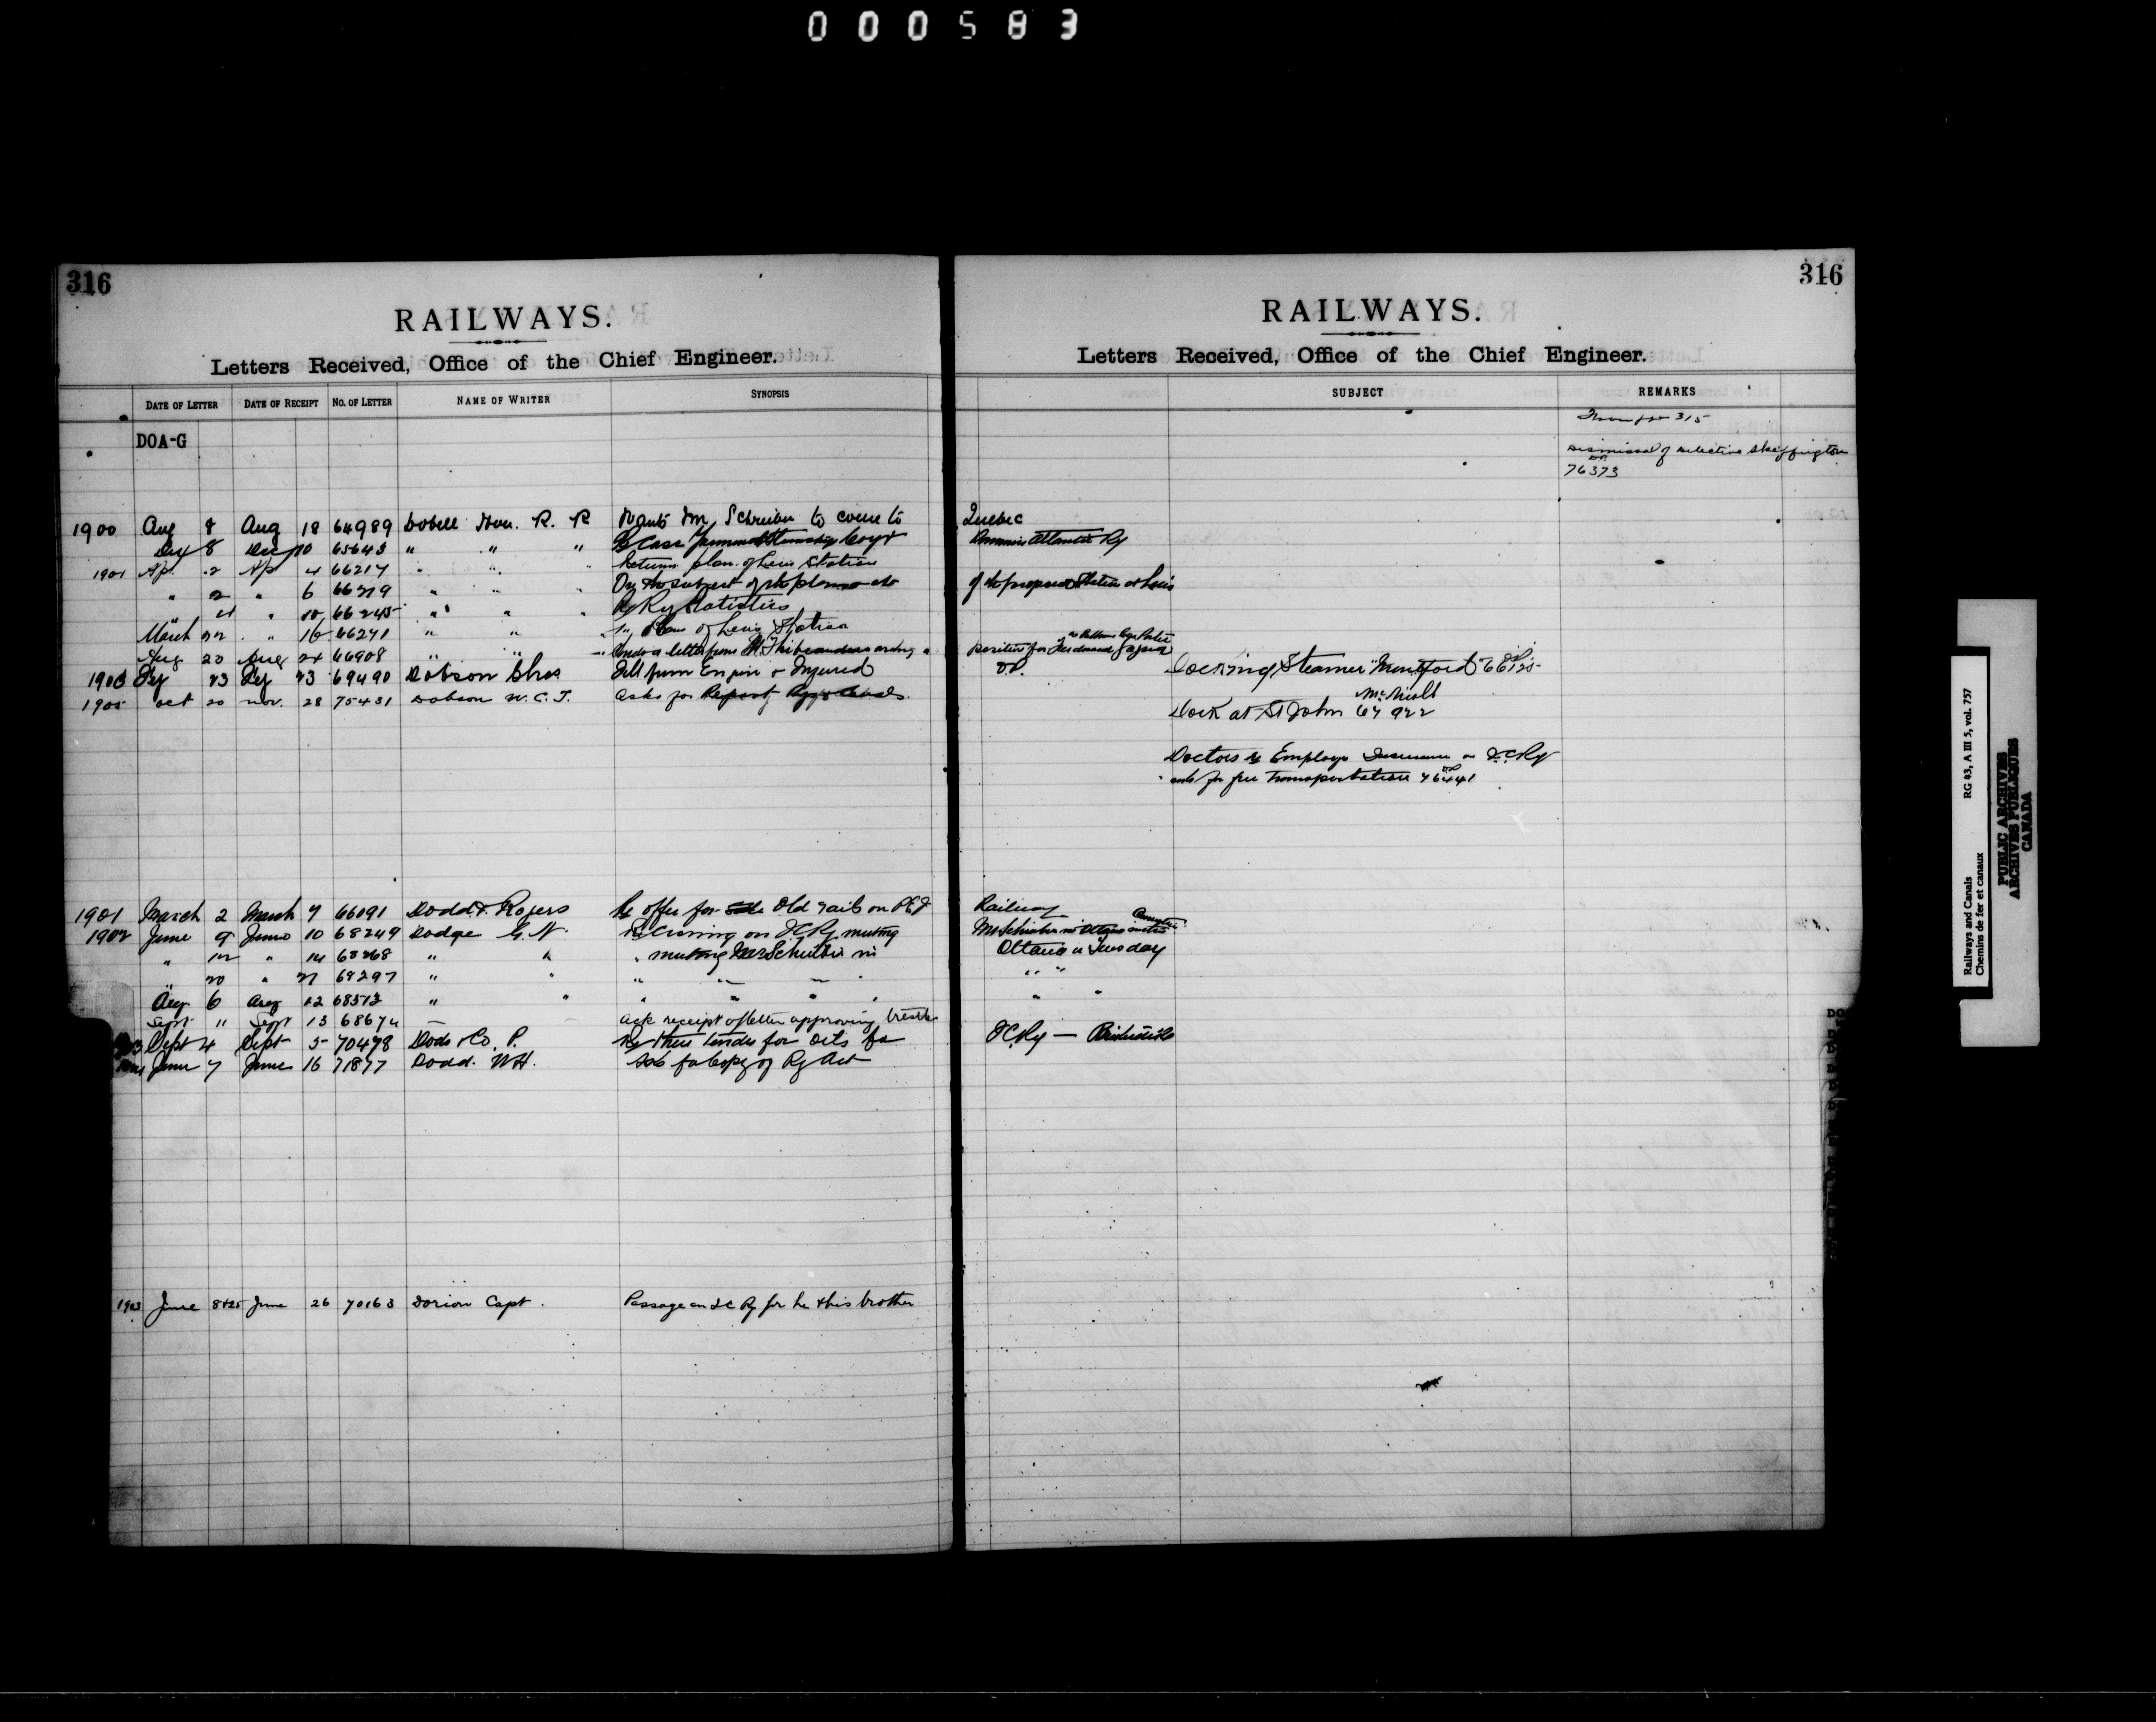 000583
316
RAILWAYS.
Letters Received, Office of the Chief Engineer.
DATE OF LETTER DATE OF RECEIPT No. OF LETTER NAME OF WRITER SYNOPSIS
DOA-G
1900 Aug 8 Aug 18 64989 Dobell Hon. R. R Wants Mr Schreiber to come to
Dec 8 Dec 10 65643 " " " Re Case
1901 Ap. 2 Ap 4 66217 " " " Returns plan of Levis Station
" 2 " 6 66219 " " " On the subject of the plans
" 4 " 10 66245 " " " Re Ry Statistics
March 22 " 16 66271 " " " Plans of Levis Station
Aug 20 Aug 24 66908 " " " letter from
1903 Fey 23 Fey 23 69490 Dobson Chas Fell from Engine & Injured
1905 Oct 20 Nov. 28 75431 Dobson W. C. T. asks for Report
1901 March 2 March 7 66091 Dodd & Rogers Re offer for Old rails on PEI
1902 June 9 June 10 68249 Dodge G. N. Re Crossing on ICRy meeting
" 12 " 14 68268 " " " meeting Mr Schreiber in
" 20 " 21 68297 " " " " " "
Aug 6 Aug 12 68513 " " " " " "
Sept 11 Sept 13 68674 ack receipt of letter approving trestle
Sept 4 Sept 5 70478 Dods & Co. P. Re their tender for Oils for
June 7 June 16 71877 Dodd. W H. Asks for Copy of Ry Act
1903 June 8 & 25 June 26 70163 Dorion Capt. Passage on I C Ry for he & his brother
316
RAILWAYS.
Letters Received, Office of the Chief Engineer.
SUBJECT REMARKS
From page 315
Dismissal of Detective Skeffington
76373
Quebec
Atlantic Ry
of the proposed Station at Levis
position for Ferdinand
Docking Steamer "Montford"
McNicoll
Dock at St John 67922
Doctors & Employes Insurance on I.C.Ry
ask for free transportation 76441
Railway
Mr Schreiber in Ottawa
Ottawa on Tuesday
" "
" "
ICRy —
Railways and Canals RG 43, A III 5, vol. 757
Chemins de fer et canaux
PUBLIC ARCHIVES
ARCHIVES PUBLIQUES
CANADA